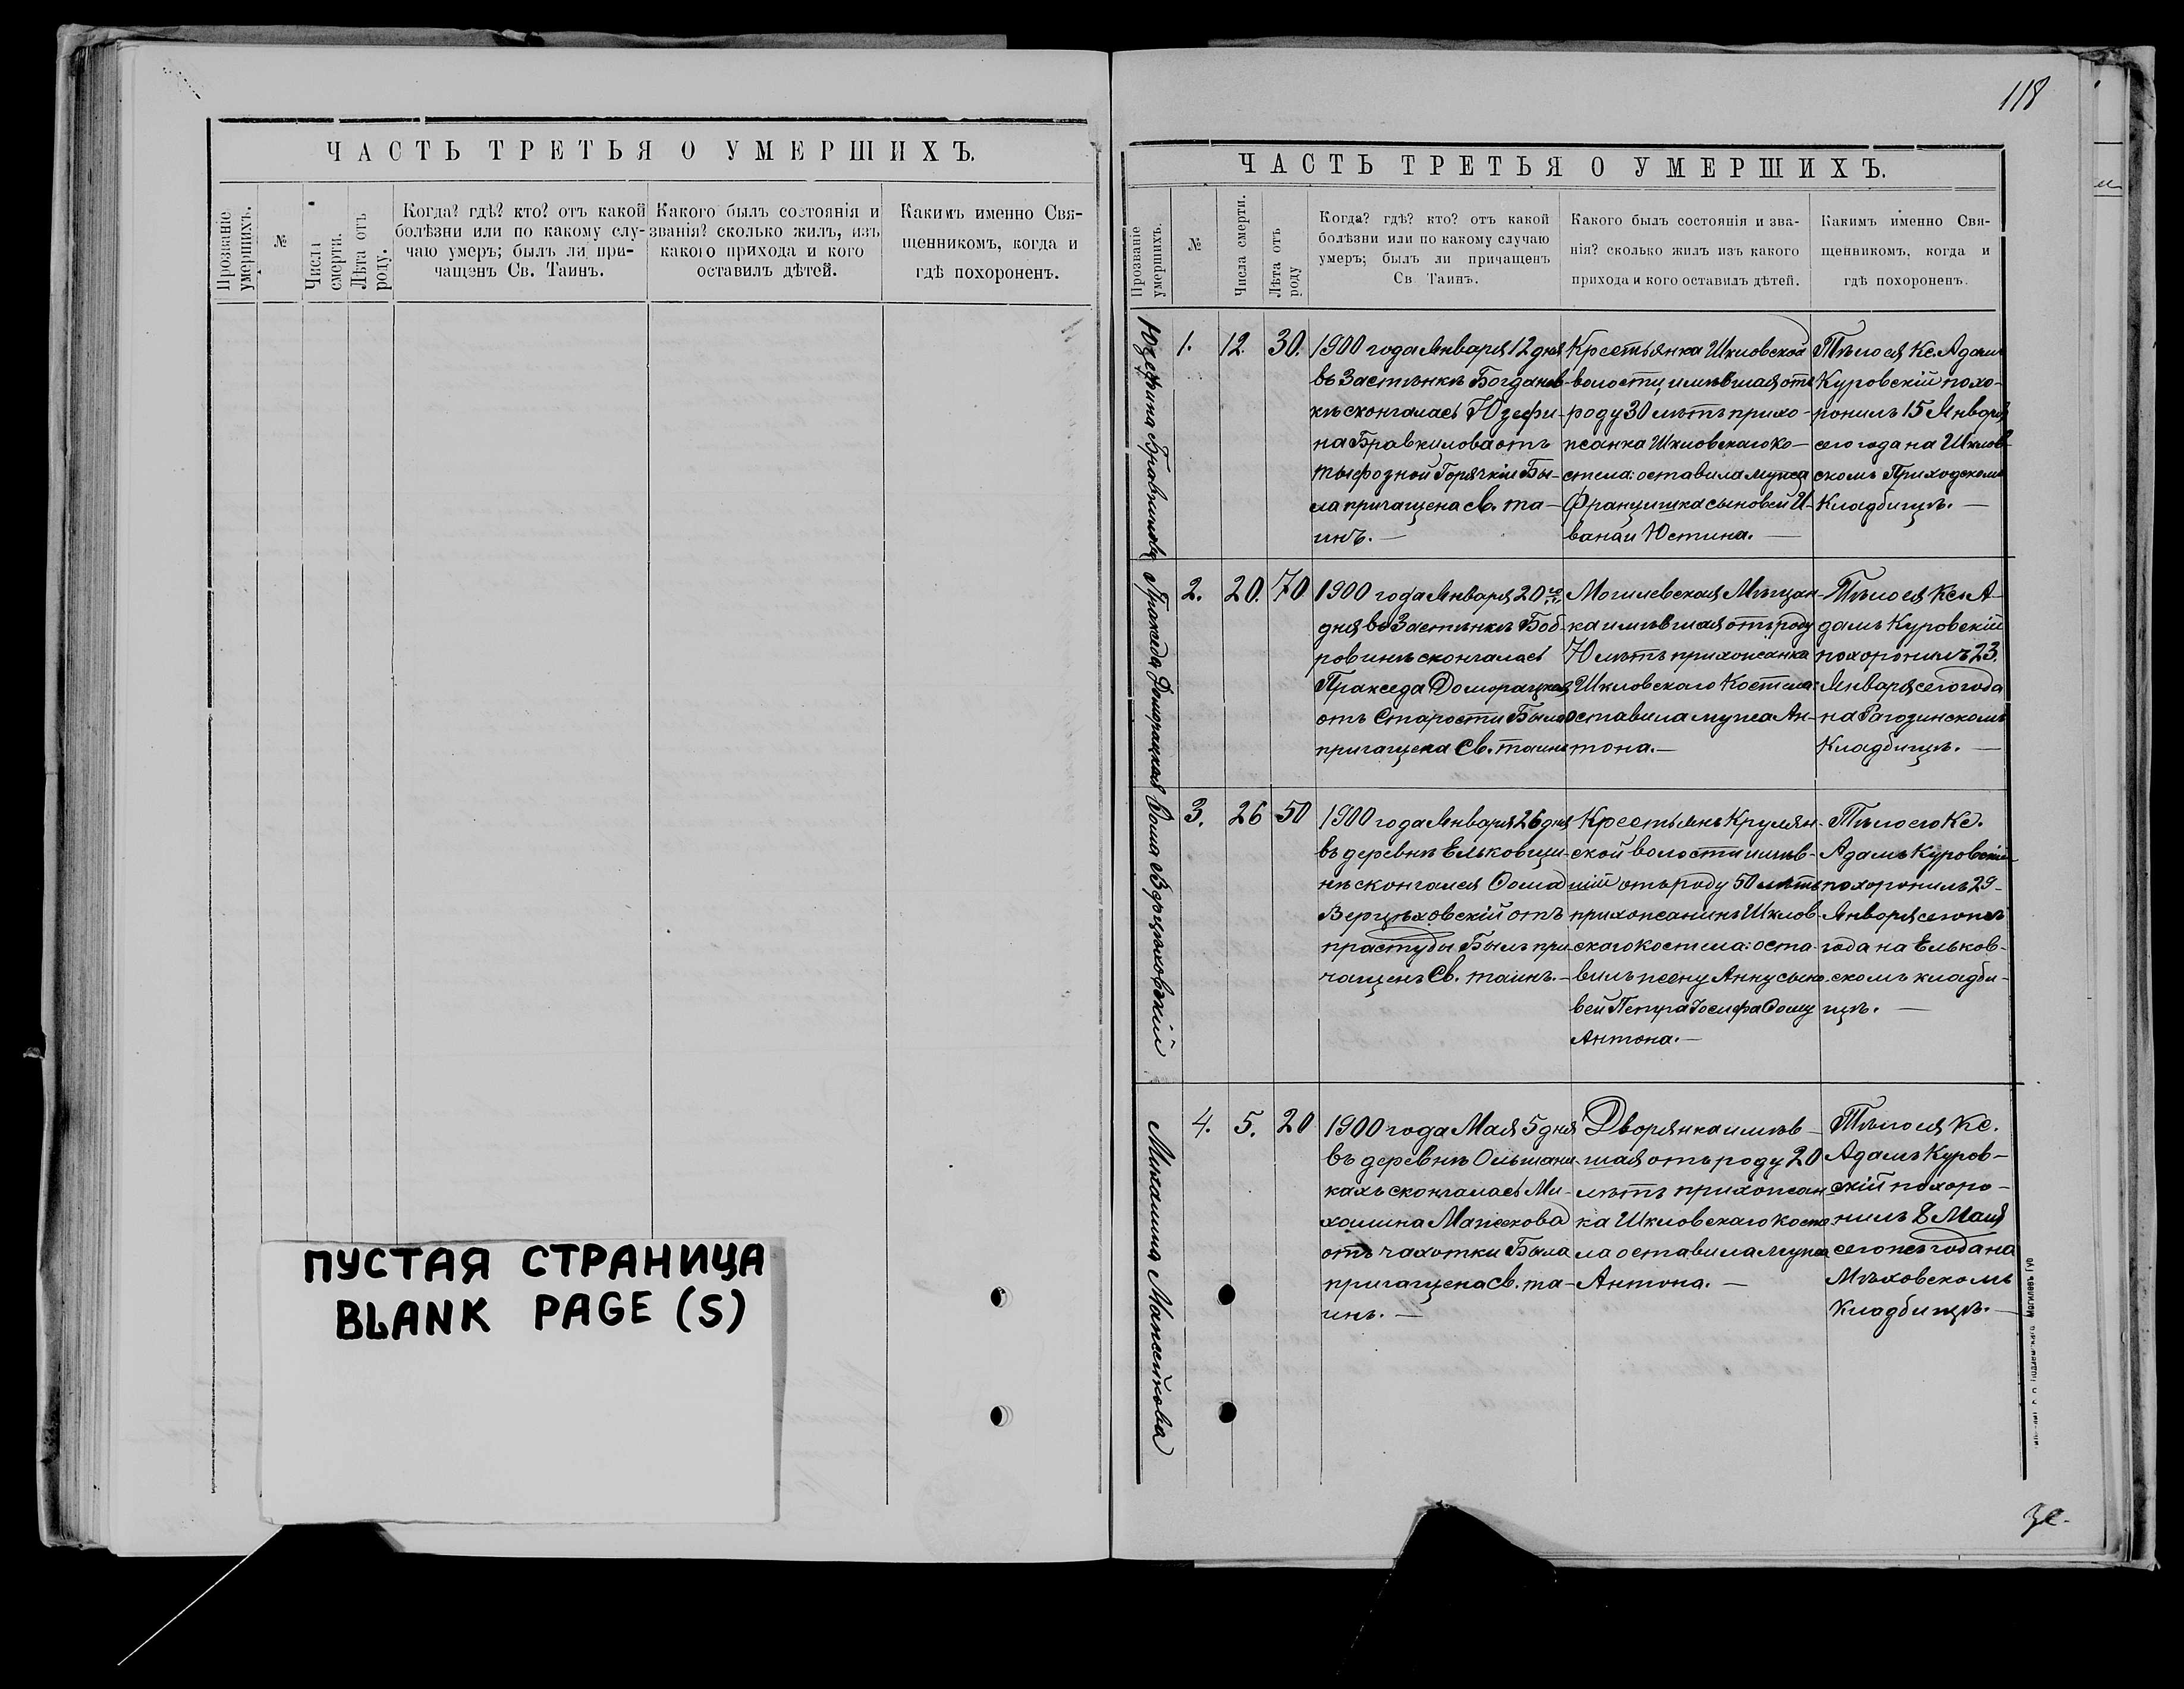 ЧАСТЬ ТРЕТЬЯ О УМЕРШИХЪ.
Прозваніе умершихъ.
№
Числа смерти.
Лѣта отъ роду.
Когда? гдѣ? кто? отъ какой
болѣзни или по какому слу-
чаю умеръ; былъ ли при-
чащенъ Св. Таинъ.
Какого былъ состоянія и
званія? сколько жилъ, изъ
какого прихода и кого
оставилъ дѣтей.
Какимъ именно Свя-
щенникомъ, когда и
гдѣ похороненъ.
ПУСТАЯ СТРАНИЦА
BLANK PAGE (S)
118
ЧАСТЬ ТРЕТЬЯ О УМЕРШИХЪ.
Прозваніе умершихъ.
№
Числа смерти.
Лѣта отъ роду
Когда? гдѣ? кто? отъ какой
болѣзни или по какому случаю
умеръ; былъ ли причащенъ
Св. Таинъ.
Какого былъ состоянія и зва-
нія? сколько жилъ изъ какого
прихода и кого оставилъ дѣтей.
Какимъ именно Свя-
щенникомъ, когда и
гдѣ похороненъ.
Юзефина
1.
12.
30.
1900 года Января 12 дня
въ Застѣнкѣ Богданов-
кѣ скончалась Юзефи-
на отъ
тыфозной Горячки Бы-
ла причащена св. та-
инъ. —
Крестьянка Шкловской
волости имѣвшая отъ
роду 30 лѣтъ прихо-
жанка Шкловскаго Ко-
стела: оставила мужа
Францишка сыновей И-
вана и Юстина. —
Тѣло ея Кс. Адамъ
Куровскій похо-
ронилъ 15 Января
сего года на Шклов-
скомъ Приходскомъ
Кладбищѣ. —
Праксeда Доморацкая
2.
20.
70
1900 года Января 20го
дня въ Застѣнкѣ Боб-
ровинѣ скончалась
Пракседа Доморацкая
отъ Старости Была
причащена Св. таинъ
Могилевская Мѣщан-
ка имѣвшая отъ роду
70 лѣтъ прихожанка
Шкловскаго Костела:
оставила мужа Ан-
тона. —
Тѣло ея Кс. А-
дамъ Куровскій
похоронилъ 23.
Января сего года
на Рагозинскомъ
Кладбищѣ. —
Ѳома Верцѣховскій
3.
26
50
1900 года Января 26 дня
въ деревнѣ Ельковщи-
нѣ скончался Ѳома
Верцѣховскій отъ
прастуды Былъ при-
чащенъ Св. таинъ. —
Крестьянъ Круглян-
ской волости имѣв-
шій отъ роду 50 лѣтъ
прихожанинъ Шклов-
скаго Костела: оста-
вилъ жену Анну сыно-
вей Петра Іосифа Ѳому
Антона. —
Тѣло его Кс.
Адамъ Куровскій
похоронилъ 29
Января сего же
года на Ельков-
скомъ кладби-
щѣ. —
Михалина Мажейкова
4.
5.
20
1900 года Мая 5 дня
въ деревнѣ Ольшани-
кахъ скончалась Ми-
халина
отъ чахотки Была
причащена Св. та-
инъ. —
Дворянка имѣв-
шая отъ роду 20
лѣтъ прихожан-
ка Шкловскаго косте-
ла оставила мужа
Антона. —
Тѣло ея Кс.
Адамъ Куров-
скій похоро-
нилъ 8 Мая
сего же года на
Мѣховскомъ
Кладбищѣ. —
Могилевъ Губ